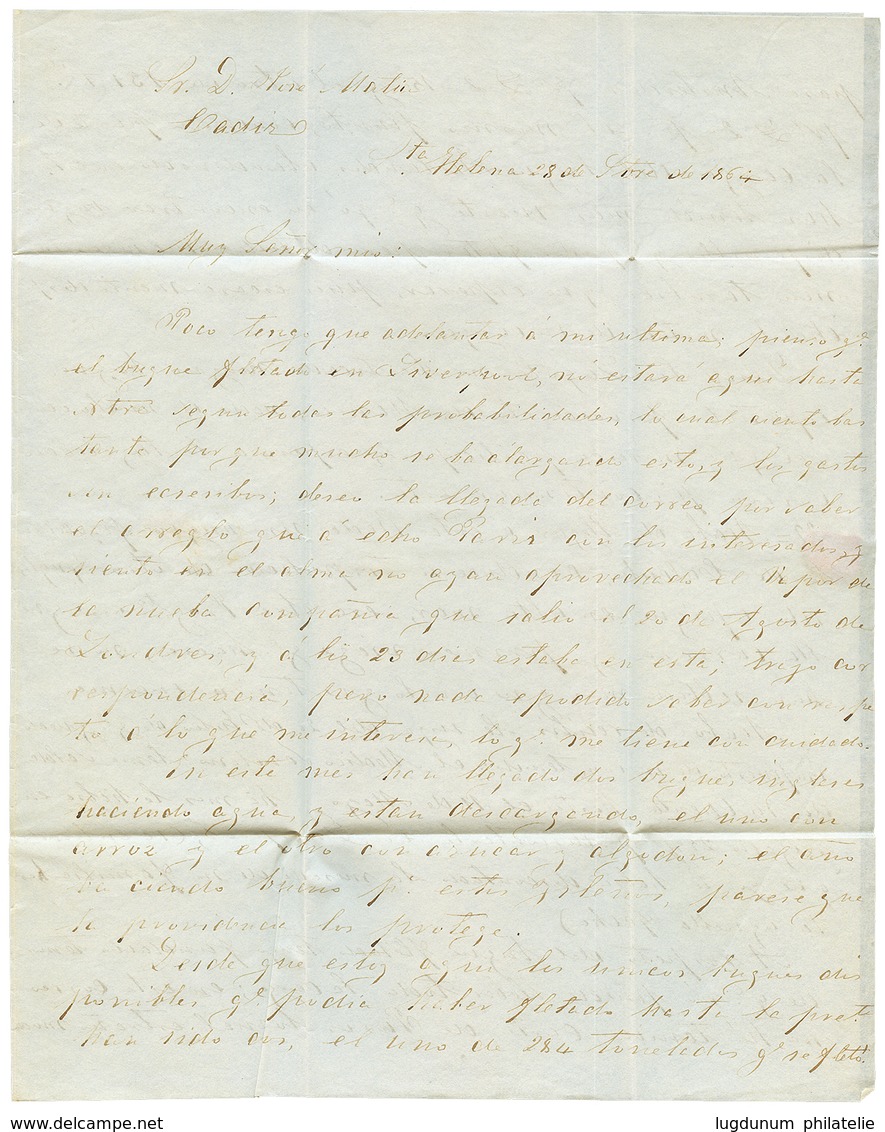 Sr. D. José Matia
Cadiz
Sta. Helena 28 de Stbre de 1864
Muy Señor mio:
Poco tengo que adelantar á mi ultima; pienso qe.
el buque fletado en Liverpool, nó estará aqui hasta
según todas las probabilidades, lo cual siento bas
tante por que mucho se ba álargando esto, y los gastos
son ecsesibos; deseo la llegada del correo por saber
el arreglo que a echo Paris con los interesados, y
siento en el alma no ayan aprovechado el Vapor de
la nueba compañia que salio el 20 de Agosto de
Londres, y á los 23 dias estaba en esta; trajo cor
respondencia, pero nada e podido saber con respe
to á lo que me interesa, lo qe. me tiene con cuidado.
En este mes han llegado dos buques ingleses
haciendo agua, y estan descargando, el uno con
arroz y el otro con azucar y algodon; el año
ba ciendo bueno pa. estos parese que
la providencia los protege.
Desde que estoy aqui los unicos buques dis
ponibles qe. podia haber fletado hasta la prete.
han sido dos, el uno de 284 toneladas qe. se fletó
www.delcampe.net
lugdunum philatelie